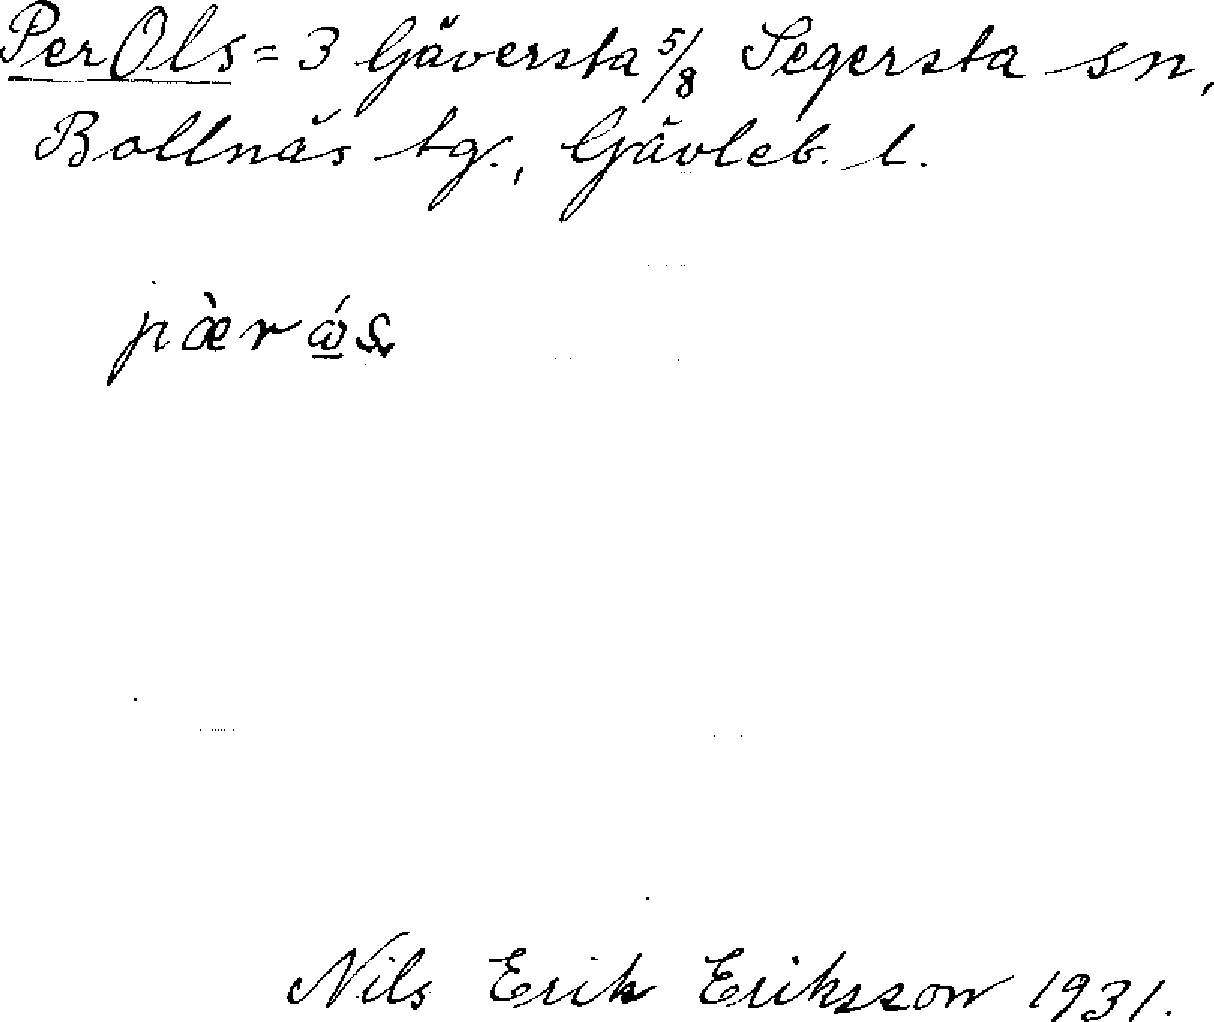 Per Ols = 3 Gäversta 5/8 Segersta sn,
Bollnäs tg., Gävleb. l.
pæ̀rώ̲s̬
Nils Erik Eriksson 1931.